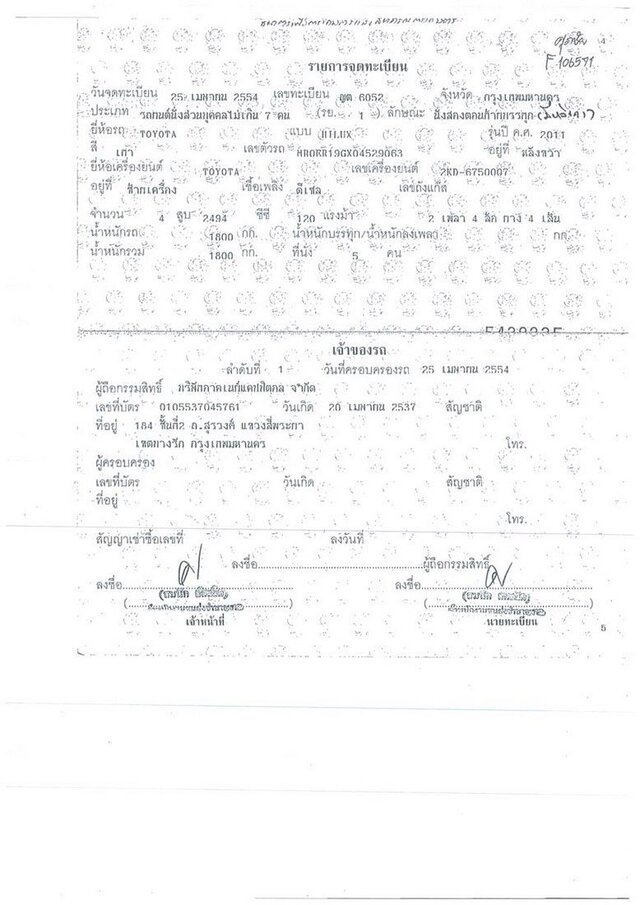 4
F 106571
รายการจดทะเบียน
วันจดทะเบียน 25 เมษายน 2554 เลขทะเบียน 6052 จังหวัด กรุงเทพมหานคร
ประเภท รถยนต์นั่งส่วนบุคคลไม่เกิน 7 คน (รย. 1 ) ลักษณะ นั่งสองตอนท้ายบรรทุก
ยี่ห้อรถ TOYOTA แบบ HILUX รุ่นปี ค.ศ. 2011
สี เทา เลขตัวรถ อยู่ที่ หลังขวา
ยี่ห้อเครื่องยนต์ TOYOTA เลขเครื่องยนต์ 2KD-6750007
อยู่ที่ ซ้ายเครื่อง เชื้อเพลิง ดีเซล เลขถังแก๊ส
จำนวน 4 สูบ 2494 ซีซี 120 แรงม้า 2 เพลา 4 ล้อ ยาง 4 เส้น
น้ำหนักรถ 1800 กก. น้ำหนักบรรทุก/น้ำหนักลงเพลา กก.
น้ำหนักรวม 1800 กก. ที่นั่ง 5 คน
เจ้าของรถ
ลำดับที่ 1 วันที่ครอบครองรถ 25 เมษายน 2554
ผู้ถือกรรมสิทธิ์ จำกัด
เลขที่บัตร 0105537045761 วันเกิด 20 เมษายน 2537 สัญชาติ
ที่อยู่ 184 ชั้นที่2 ถ.สุรวงศ์ แขวงสี่พระยา
เขตบางรัก กรุงเทพมหานคร โทร.
ผู้ครอบครอง
เลขที่บัตร วันเกิด สัญชาติ
ที่อยู่
โทร.
สัญญาเช่าซื้อเลขที่ ลงวันที่
ลงชื่อ ผู้ถือกรรมสิทธิ์
ลงชื่อ ลงชื่อ
เจ้าหน้าที่ นายทะเบียน
5